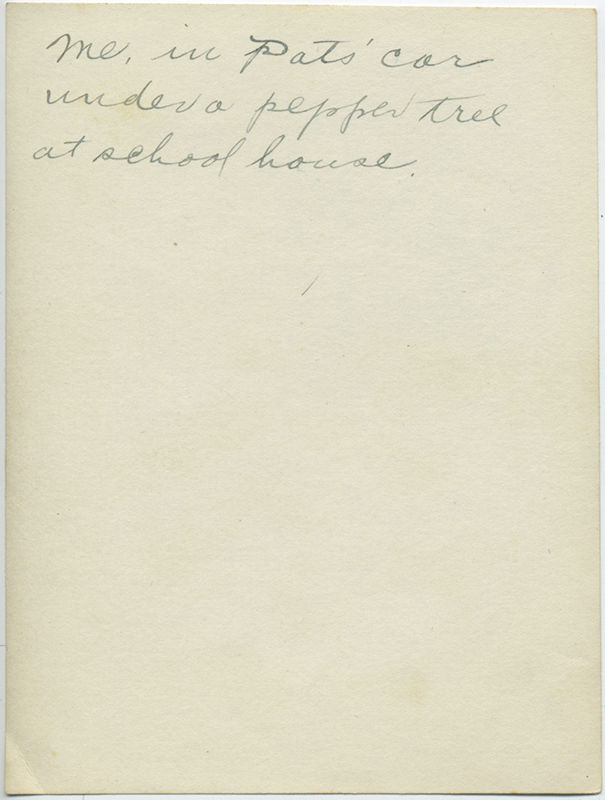 Me, in Pats' car
under a pepper tree
at school house.